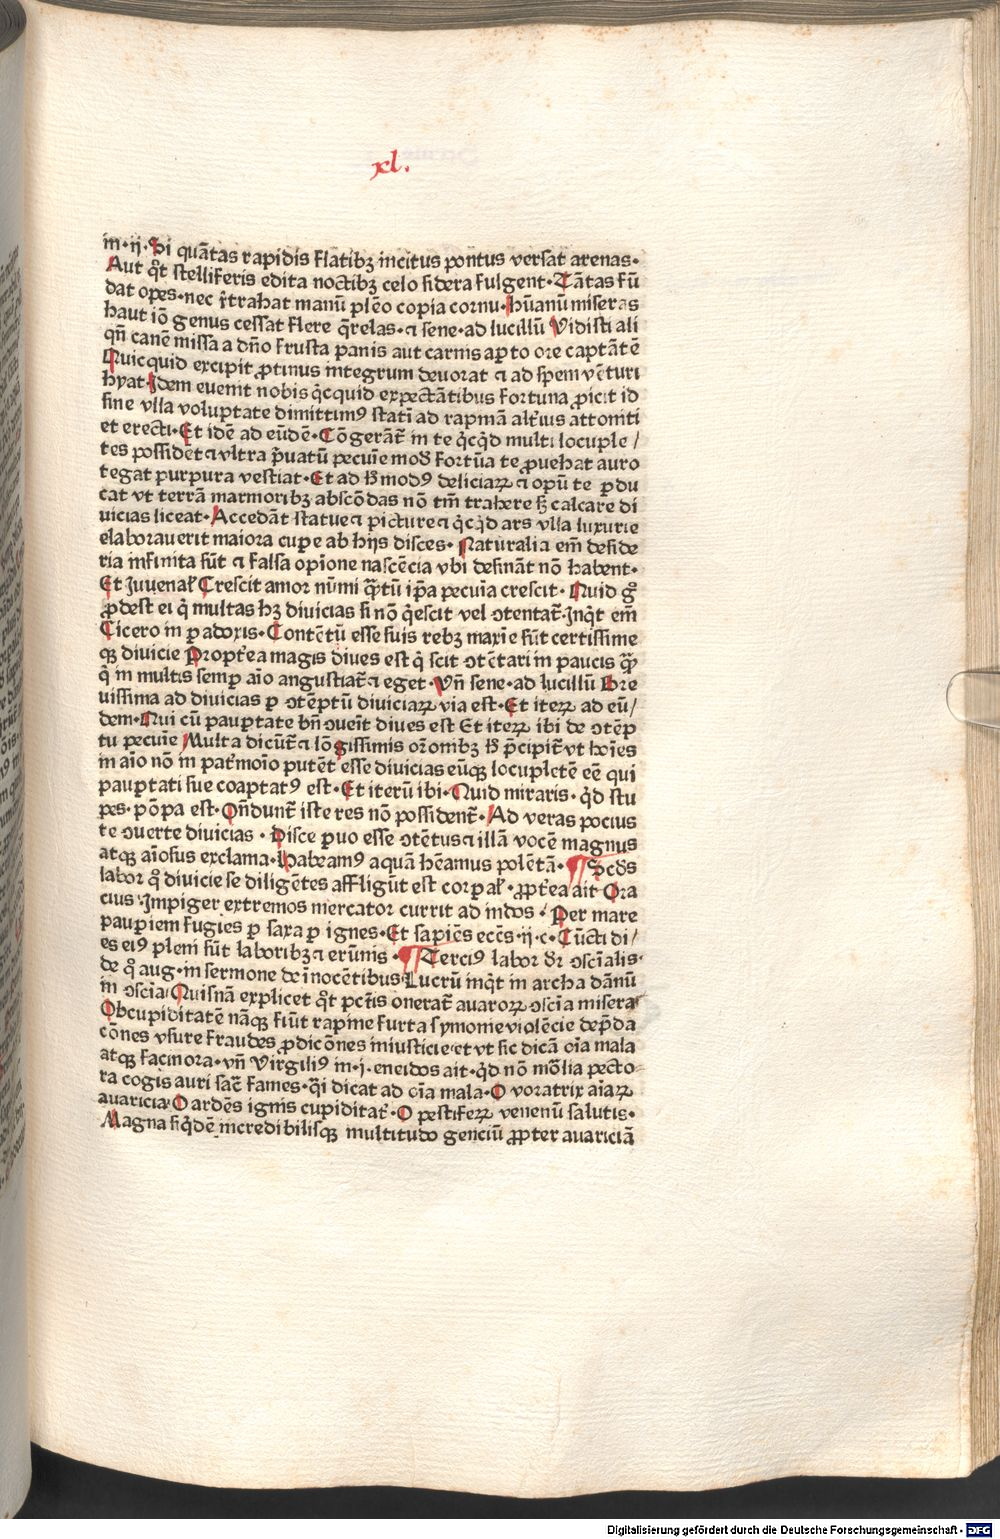 xl.
in·ij·Si quātas rapidis flatibꝫ incitus pontus versat arenas·
Aut qͦt stelliferis edita noctibꝫ celo sidera fulgent·Tātas fū
dat opes·nec r̄trahat manū plēo copia cornu·hūanū miseras
haut iō genus cessat flere q̄relas·⁊ sene·ad lucillū Vidisti ali
qn̄ canē missa a dn̄o frusta panis aut carnis aꝑto ore captātē
Quicquid excipit ꝓtinus integrum deuorat ⁊ ad spem vēturi
hyat·Idem euenit nobis q̇cquid expectātibus fortuna ꝓicit id
sine vlla voluptate dimittimꝯ statī ad rapinā alt̄ius attoniti
et erecti·Et idē ad eūdē·Cōgerāt̄ in te q̇cq̇d multi locuple /
tes possidēt ⁊ vltra p̄uatū pecuīe mod͛ fortūa te ꝓuehat auro
tegat purpura vestiat·Et ad h͛modꝯ deliciaꝝ ⁊ opū te ꝑdu
cat vt terrā marmoribꝫ abscōdas nō tm̄ trahere sꝫ calcare di
uicias liceat·Accedāt statue ⁊ picture ⁊ q̇cq̇d ars vlla luxurie
elaborauerit maiora cuꝑe ab hijs disces·Naturalia em̄ deside
ria infinita sūt ⁊ falsa opīone nascēcia vbi desināt nō habent·
Et Iuuenał Crescit amor nūmi qᷓtū ip̄a pecuīa crescit·Quid gͦ
ꝓdest ei q̇ multas hꝫ diuicias si nō q̇escit vel ↄtentat̄·Inq̇t em̄
Cicero in ꝑadoxis·Contētū esse suis rebꝫ maxīe sūt certissime
qꝫ diuicie Propt̄ea magis diues est q̇ scit ↄtētari in paucis qᷓꝫ
q̇ in multis semꝑ aīo angustiat̄ ⁊ eget·Vn̄ sene·ad lucillū Bre
uissima ad diuicias ꝑ ↄtēptū diuiciaꝝ via est·Et iteꝝ ad eū/
dem·Qui cū pauꝑtate bn̄ ↄueīt diues est Et iteꝝ ibi de ↄtēp
tu pecuīe Multa dicūt̄ ⁊ lōgissimis or̄onibꝫ h͛ p̄cipit̄ vt hoīes
in aīo nō in pat̄moīo putēt esse diuicias eūqꝫ locupletē eē qui
pauꝑtati sue coaptatꝯ est·Et iterū ibi·Quid miraris·q̇d stu
pes·pōpa est·On̄dunt̄ iste res nō possident̄·Ad veras pocius
te ↄuerte diuicias·Disce ꝑuo esse ↄtētus ⁊ illā vocē magnus
atqꝫ aīosus exclama·habeamꝯ aquā hēamus polētā·¶Scd͛s
labor qͦ diuicie se diligētes affligūt est corꝑał·ꝓpt̄ea ait Ora
cius·Impiger extremos mercator currit ad indos·Per mare
pauꝑiem fugies ꝑ saxa ꝑ ignes·Et sapiēs ecēs·ij·c·Cūcti di/
es eiꝯ pleni sūt laboribꝫ ⁊ erūnis·¶Terciꝯ labor dr̄ ↄsciālis·
de qͦ aug·in sermone de inocētibus·Lucrū inq̇t in archa dānū
in ↄscīa·Quisnā explicet qͦt pct̄is onerat̄ auaroꝝ ↄscīa misera
Obcupiditatē nāqꝫ fiūt rapine furta symonie violēcie dep̄da
cōnes vsure fraudes ꝓdicōnes iniusticie et vt sic dicā oīa mala
atqꝫ facinora·vn̄ Virgiliꝯ in·i·eneidos ait·q̇d nō mōlia pecto
ra cogis auri sac̄ fames·q̄i dicat ad oīa mala·O voratrix aīaꝝ
auaricia·O ardēs ignis cupiditat̄·O pestifeꝝ venenū salutis·
Magna siq̇dē incredibilisqꝫ multitudo genciū ꝓpter auariciā
Digitalisierung gefördert durch die Deutsche Forschungsgemeinschaft · DFG